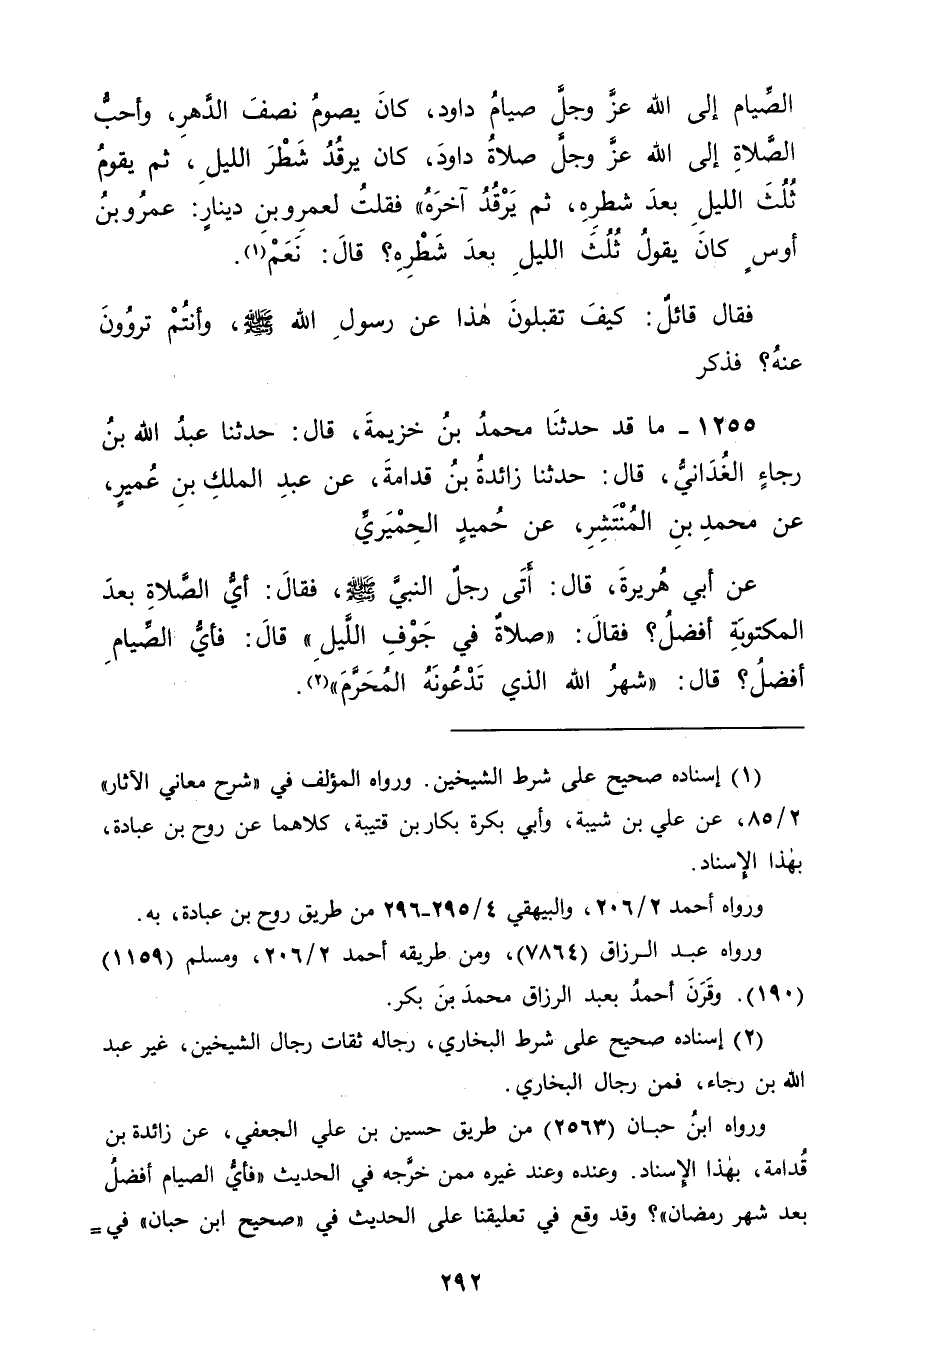 الصِّيام إلى الله عزَّ وجلَّ صيامُ داود، كانَ يصومُ نصفَ الدَّهرِ، وأحبُّ
الصَّلاةِ إلى الله عزَّ وجلَّ صلاةُ داودَ، كان يرقُدُ شَطْرَ الليلِ، ثم يقومُ
ثُلُثَ الليلِ بعدَ شطرِهِ، ثم يَرْقُدُ آخرَهُ» فقلتُ لعمرِو بنِ دينارٍ: عمرُو بنُ
أوسٍ كانَ يقولُ ثُلُثَ الليلِ بعدَ شَطْرِهِ؟ قالَ: نَعَمْ(١).
فقال قائلٌ: كيفَ تقبلونَ هٰذا عن رسولِ الله ﷺ، وأنتُمْ تروُونَ
عنهُ؟ فذكر
١٢٥٥ ـ ما قد حدثنَا محمدُ بنُ خزيمةَ، قال: حدثنا عبدُ الله بنُ
رجاءٍ الغُدَانيُّ، قال: حدثنا زائدةُ بنُ قدامةَ، عن عبدِ الملكِ بنِ عُميرٍ،
عن محمدِ بنِ المُنْتَشِرِ، عن حُميدٍ الحِمْيَريِّ
عن أبي هُريرةَ، قال: أَتَى رجلٌ النبيَّ ﷺ، فقالَ: أيُّ الصَّلاةِ بعدَ
المكتوبَةِ أفضلُ؟ فقالَ: «صلاةٌ في جَوْفِ اللَّيلِ» قالَ: فأيُّ الصِّيامِ
أفضلُ؟ قال: «شهرُ الله الذي تَدْعُونَهُ المُحَرَّمَ»(٢).
(١) إسناده صحيح على شرط الشيخين. ورواه المؤلف في «شرح معاني الآثار»
٨٥/٢، عن علي بن شيبة، وأبي بكرة بكار بن قتيبة، كلاهما عن روح بن عبادة،
بهٰذا الإِسناد.
ورواه أحمد ٢٠٦/٢، والبيهقي ٢٩٥/٤-٢٩٦ من طريق روح بن عبادة، به.
ورواه عبد الرزاق (٧٨٦٤)، ومن طريقه أحمد ٢٠٦/٢، ومسلم (١١٥٩)
(١٩٠). وقَرَنَ أحمدُ بعبد الرزاق محمدَ بنَ بكر.
(٢) إسناده صحيح على شرط البخاري، رجاله ثقات رجال الشيخين، غير عبد
الله بن رجاء، فمن رجال البخاري.
ورواه ابنُ حبان (٢٥٦٣) من طريق حسين بن علي الجعفي، عن زائدة بن
قُدامة، بهٰذا الإِسناد. وعنده وعند غيره ممن خرَّجه في الحديث «فأيُّ الصيام أفضلُ
بعد شهر رمضان»؟ وقد وقع في تعليقنا على الحديث في «صحيح ابن حبان» في =
٢٩٢